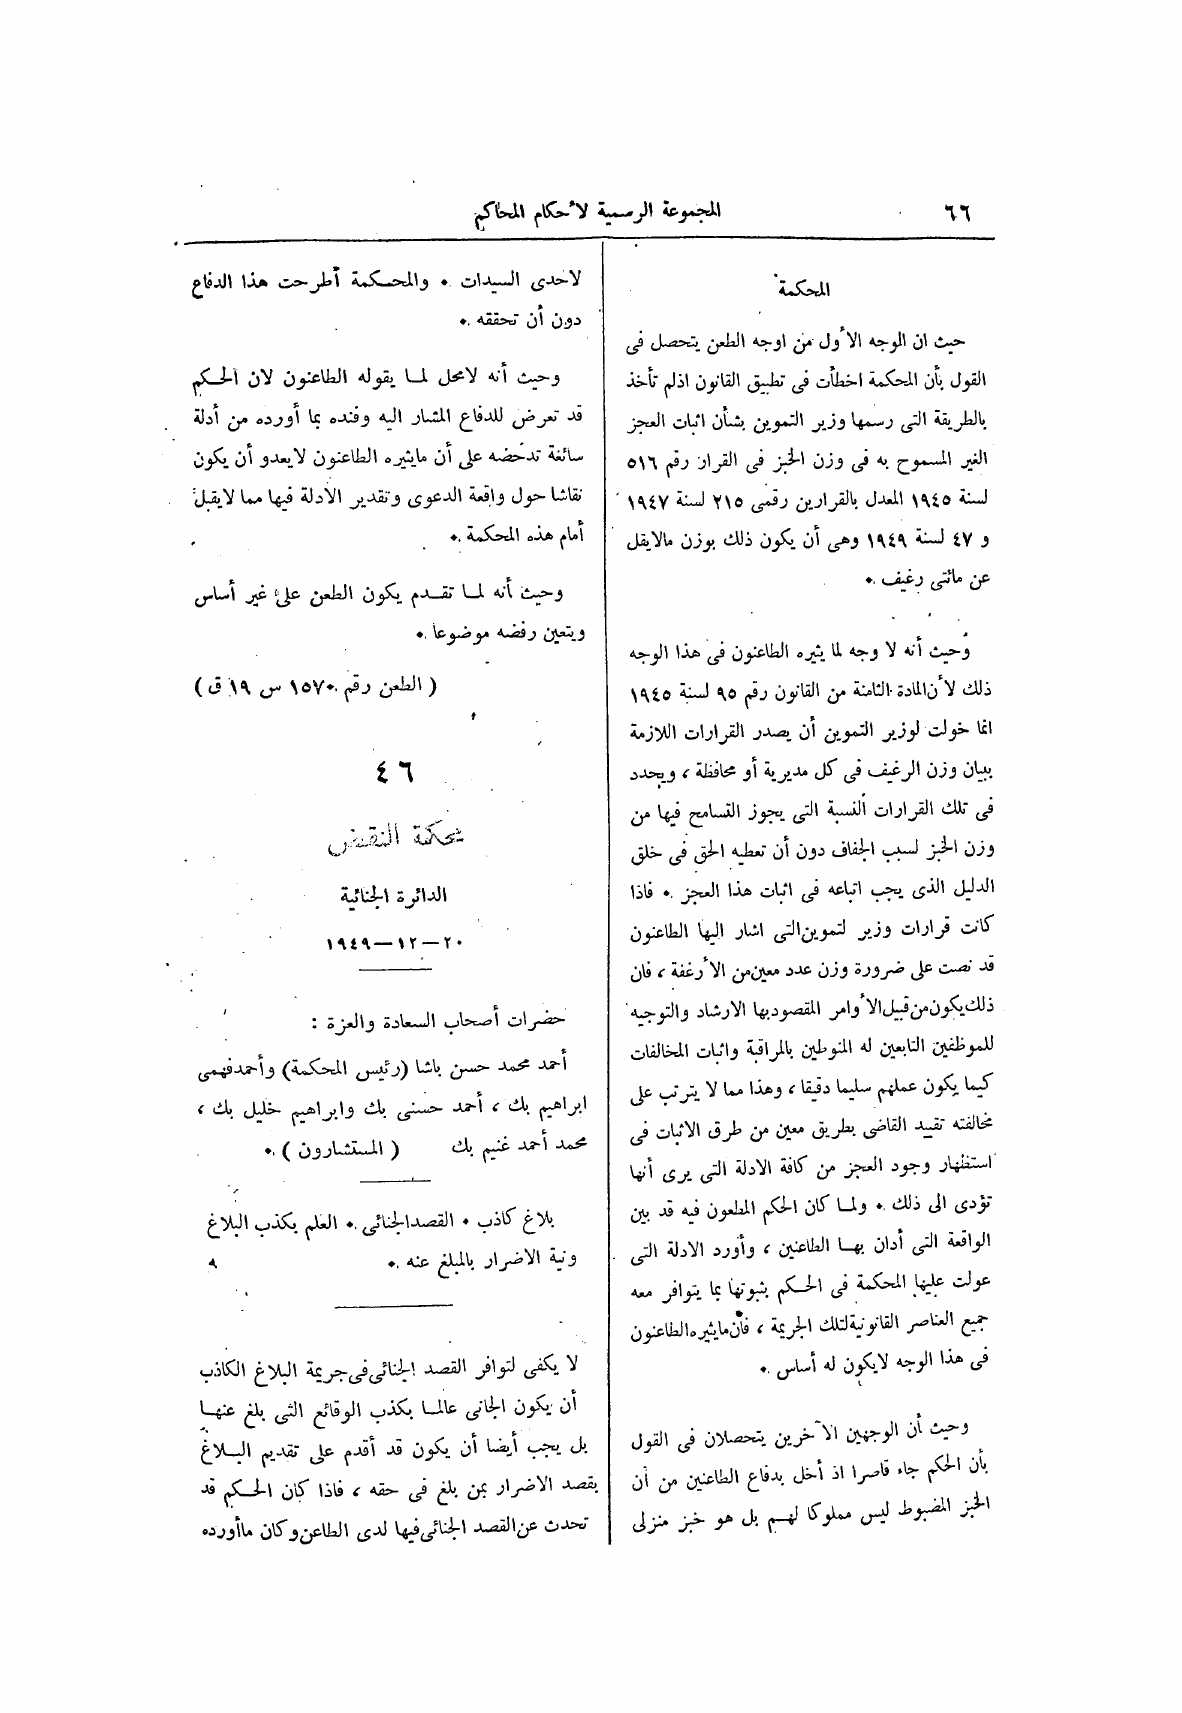 ٦٦
المجموعة الرسمية لأحكام المحاكم
المحكمة
حيث ان الوجه الأول من اوجه الطعن يتحصل فى
القول بأن المحكمة اخطأت فى تطبيق القانون اذلم تأخذ
بالطريقة التى رسمها وزير التموين بشأن اثبات العجز
الغير المسموح به فى وزن الخبز فى القرار رقم ٥١٦
لسنة ١٩٤٥ المعدل بالقرارين رقمى ٢١٥ لسنة ١٩٤٧
و ٤٧ لسنة ١٩٤٩ وهى أن يكون ذلك بوزن مالايقل
عن مائتى رغيف .
وحيث أنه لا وجه لما يثيره الطاعنون فى هذا الوجه
ذلك لأن المادة الثامنة من القانون رقم ٩٥ لسنة ١٩٤٥
انما خولت لوزير التموين أن يصدر القرارات اللازمة
ببيان وزن الرغيف فى كل مديرية أو محافظة ، ويحدد
فى تلك القرارات النسبة التى يجوز التسامح فيها من
وزن الخبز لسبب الجفاف دون أن تعطيه الحق فى خلق
الدليل الذى يجب اتباعه فى اثبات هذا العجز . فاذا
كانت قرارات وزير لتموين التى اشار اليها الطاعنون
قد نصت على ضرورة وزن عدد معين من الأرغفة ، فان
ذلك يكون من قبيل الأوامر المقصود بها الارشاد والتوجيه
للموظفين التابعين له المنوطين بالمراقبة واثبات المخالفات
كيما يكون عملهم سليما دقيقا ، وهذا مما لا يترتب على
مخالفته تقييد القاضى بطريق معين من طرق الاثبات فى
استظهار وجود العجز من كافة الادلة التى يرى أنها
تؤدى الى ذلك . ولما كان الحكم المطعون فيه قد بين
الواقعة التى أدان بها الطاعنين ، وأورد الادلة التى
عولت عليها المحكمة فى الحكم بثبوتها بما يتوافر معه
جميع العناصر القانونية لتلك الجريمة ، فأن مايثيره الطاعنون
فى هذا الوجه لايكون له أساس .
وحيث أن الوجهين الآخرين يتحصلان فى القول
بأن الحكم جاء قاصرا اذ أخل بدفاع الطاعنين من أن
الخبز المضبوط ليس مملوكا لهم بل هو خبز منزلى
لاحدى السيدات . والمحكمة أطرحت هذا الدفاع
دون أن تحققه .
وحيث أنه لامحل لما يقوله الطاعنون لان الحكم
قد تعرض للدفاع المشار اليه وفنده بما أورده من أدلة
سائغة تدحضه على أن مايثيره الطاعنون لايعدو أن يكون
نقاشا حول واقعة الدعوى وتقدير الادلة فيها مما لايقبل
أمام هذه المحكمة .
وحيث أنه لما تقدم يكون الطعن على غير أساس
ويتعين رفضه موضوعا .
( الطعن رقم ١٥٧٠ س ١٩ ق )
٤٦
محكمة النقض
الدائرة الجنائية
٢٠—١٢—١٩٤٩
حضرات أصحاب السعادة والعزة :
أحمد محمد حسن باشا (رئيس المحكمة) وأحمدفهمى
ابراهيم بك ، أحمد حسنى بك وابراهيم خليل بك ،
محمد أحمد غنيم بك ( المستشارون ) .
بلاغ كاذب . القصد الجنائى . العلم بكذب البلاغ
ونية الاضرار بالمبلغ عنه .
لا يكفى لتوافر القصد الجنائى فى جريمة البلاغ الكاذب
أن يكون الجانى عالما بكذب الوقائع التى بلغ عنها
بل يجب أيضا أن يكون قد أقدم على تقديم البلاغ
بقصد الاضرار بمن بلغ فى حقه ، فاذا كان الحكم قد
تحدث عن القصد الجنائى فيها لدى الطاعن وكان ماأورده